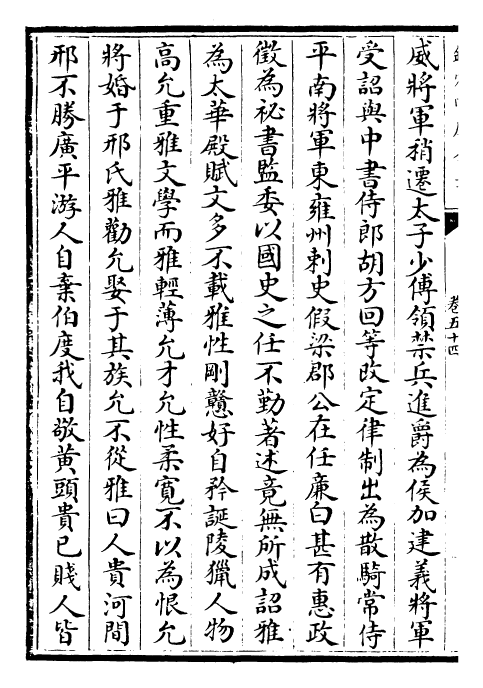 威將軍稍遷太子少傅領禁兵進爵為侯加建義將軍
受詔與中書侍郎胡方回等改定律制出為散騎常侍
平南將軍東雍州刺史假梁郡公在任廉白甚有惠政
徵為祕書監委以國史之任不勤著述竟無所成詔雅
為太華殿賦文多不載雅性剛戇好自矜誕陵獵人物
高允重雅文學而雅輕薄允才允性柔寛不以為恨允
將婚于邢氏雅勸允娶于其族允不從雅曰人貴河間
邢不勝廣平游人自棄伯度我自敬黄頭貴已賤人皆
卷五十四